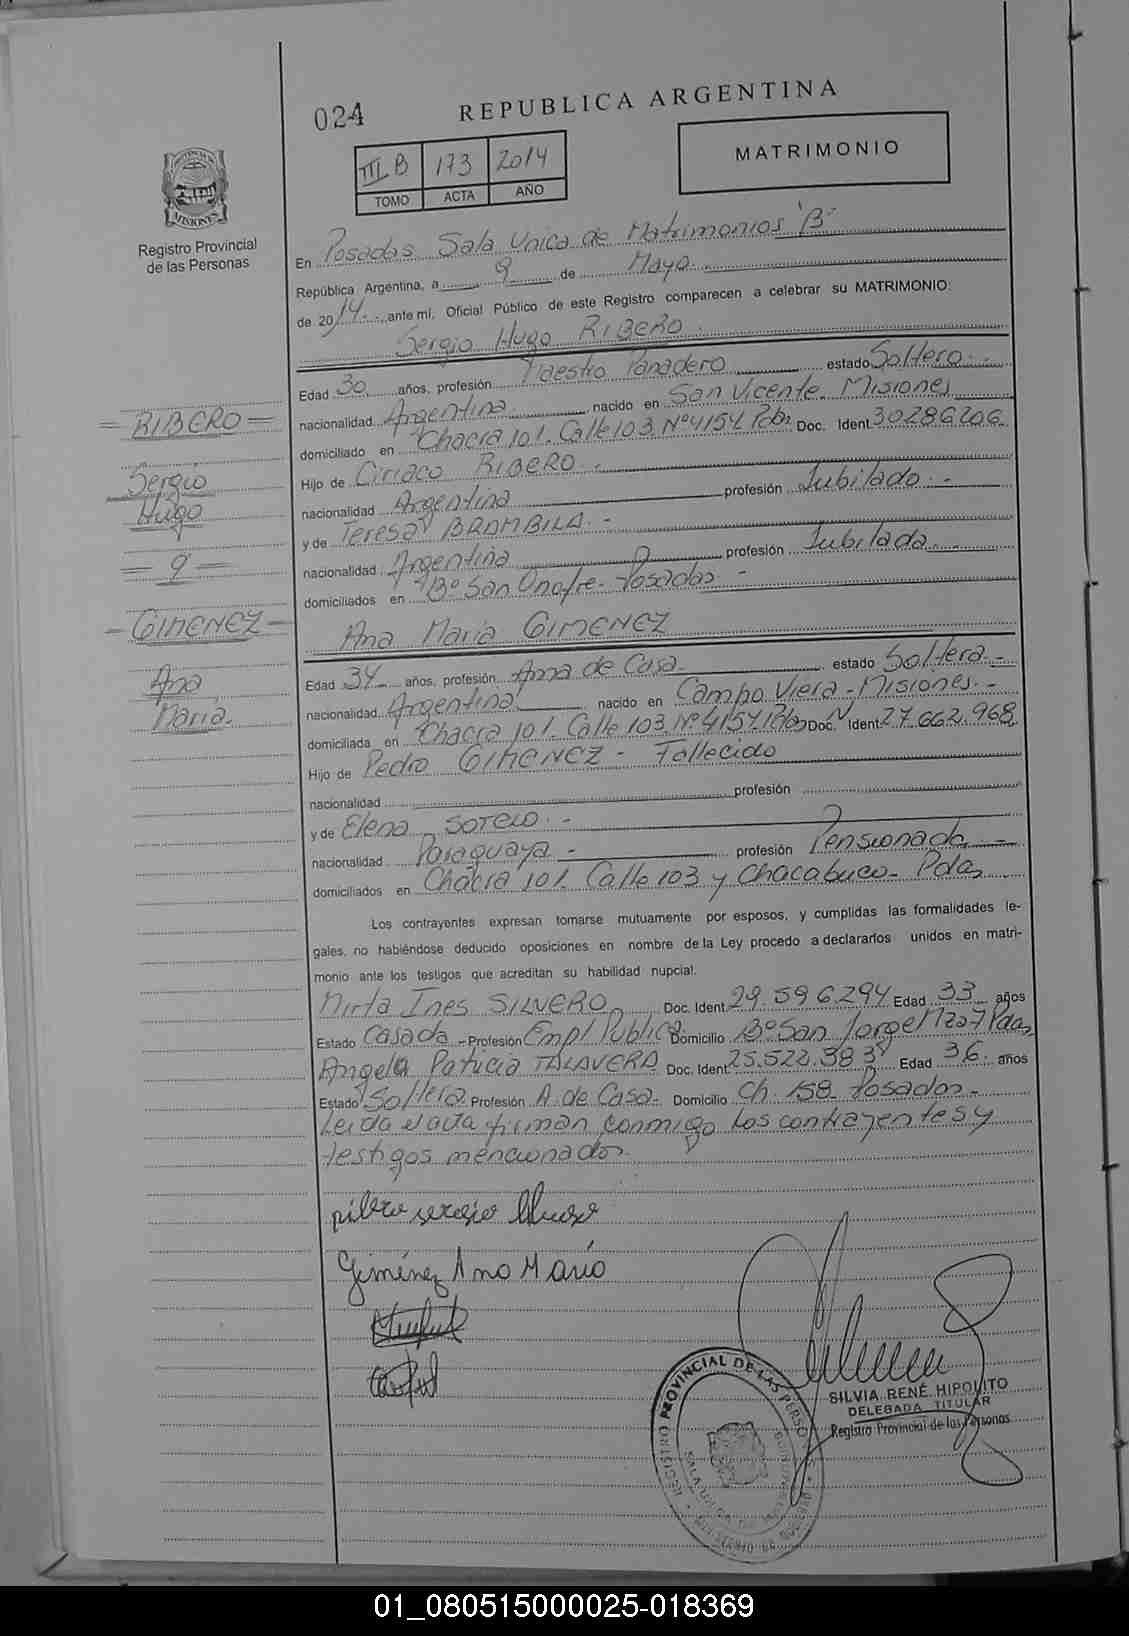 024
REPUBLICA ARGENTINA
III B 173 2014
TOMO ACTA AÑO
MATRIMONIO
PROVINCIA DE MISIONES
Registro Provincial
de las Personas
En Posadas Sala Unica de Matrimonios "B"
República Argentina, a 9 de Mayo
de 2014 ante mí, Oficial Público de este Registro comparecen a celebrar su MATRIMONIO:
Sergio Hugo RIBERO.
Edad 30 años, profesión Maestro Panadero estado Soltero.-
nacionalidad Argentina nacido en San Vicente. Misiones
domiciliado en Chacra 101. Calle 103. Nº 4154 Pdas Doc. Ident. 30286206.
Hijo de Ciriaco RIBERO.-
nacionalidad Argentina profesión Jubilado.-
y de Teresa BRAMBILA.-
nacionalidad Argentina profesión Jubilada
domiciliados en Bº San Onofre- Posadas -
Ana Maria GIMENEZ
= RIBERO =
Sergio
Hugo
= 9 =
- GIMENEZ -
Ana
Maria.
Edad 34 años, profesión Ama de Casa estado Soltera.-
nacionalidad Argentina nacido en Campo Viera - Misiones.-
domiciliada en Chacra 101. Calle 103. Nº 4154. Pdas Doc. Ident. 27.662.968
Hijo de Pedro GIMENEZ - Fallecido
nacionalidad profesión
y de Elena SOTELO.-
nacionalidad Paraguaya - profesión Pensionada.-
domiciliados en Chacra 101. Calle 103 y Chacabuco- Pdas
Los contrayentes expresan tomarse mutuamente por esposos, y cumplidas las formalidades le-
gales, no habiéndose deducido oposiciones en nombre de la Ley procedo a declararlos unidos en matri-
monio ante los testigos que acreditan su habilidad nupcial.
Mirta Ines SILVERO Doc. Ident. 29.596.294 Edad 33 años
Estado Casada - Profesión Empl Publica Domicilio Bº San Jorge Pdas
Angela Paticia TALAVERA Doc. Ident. 25.522.383 Edad 36. años
Estado Soltera Profesión A. de Casa- Domicilio Ch 158- Posadas-
Leida el acta firman conmigo los contrayentes y
testigos mencionados.
ribero sergio Hugo
Giménez Ana María
SILVIA RENÉ HIPOLITO
DELEGADA TITULAR
Registro Provincial de las Personas
REGISTRO PROVINCIAL DE LAS PERSONAS
01_080515000025-018369